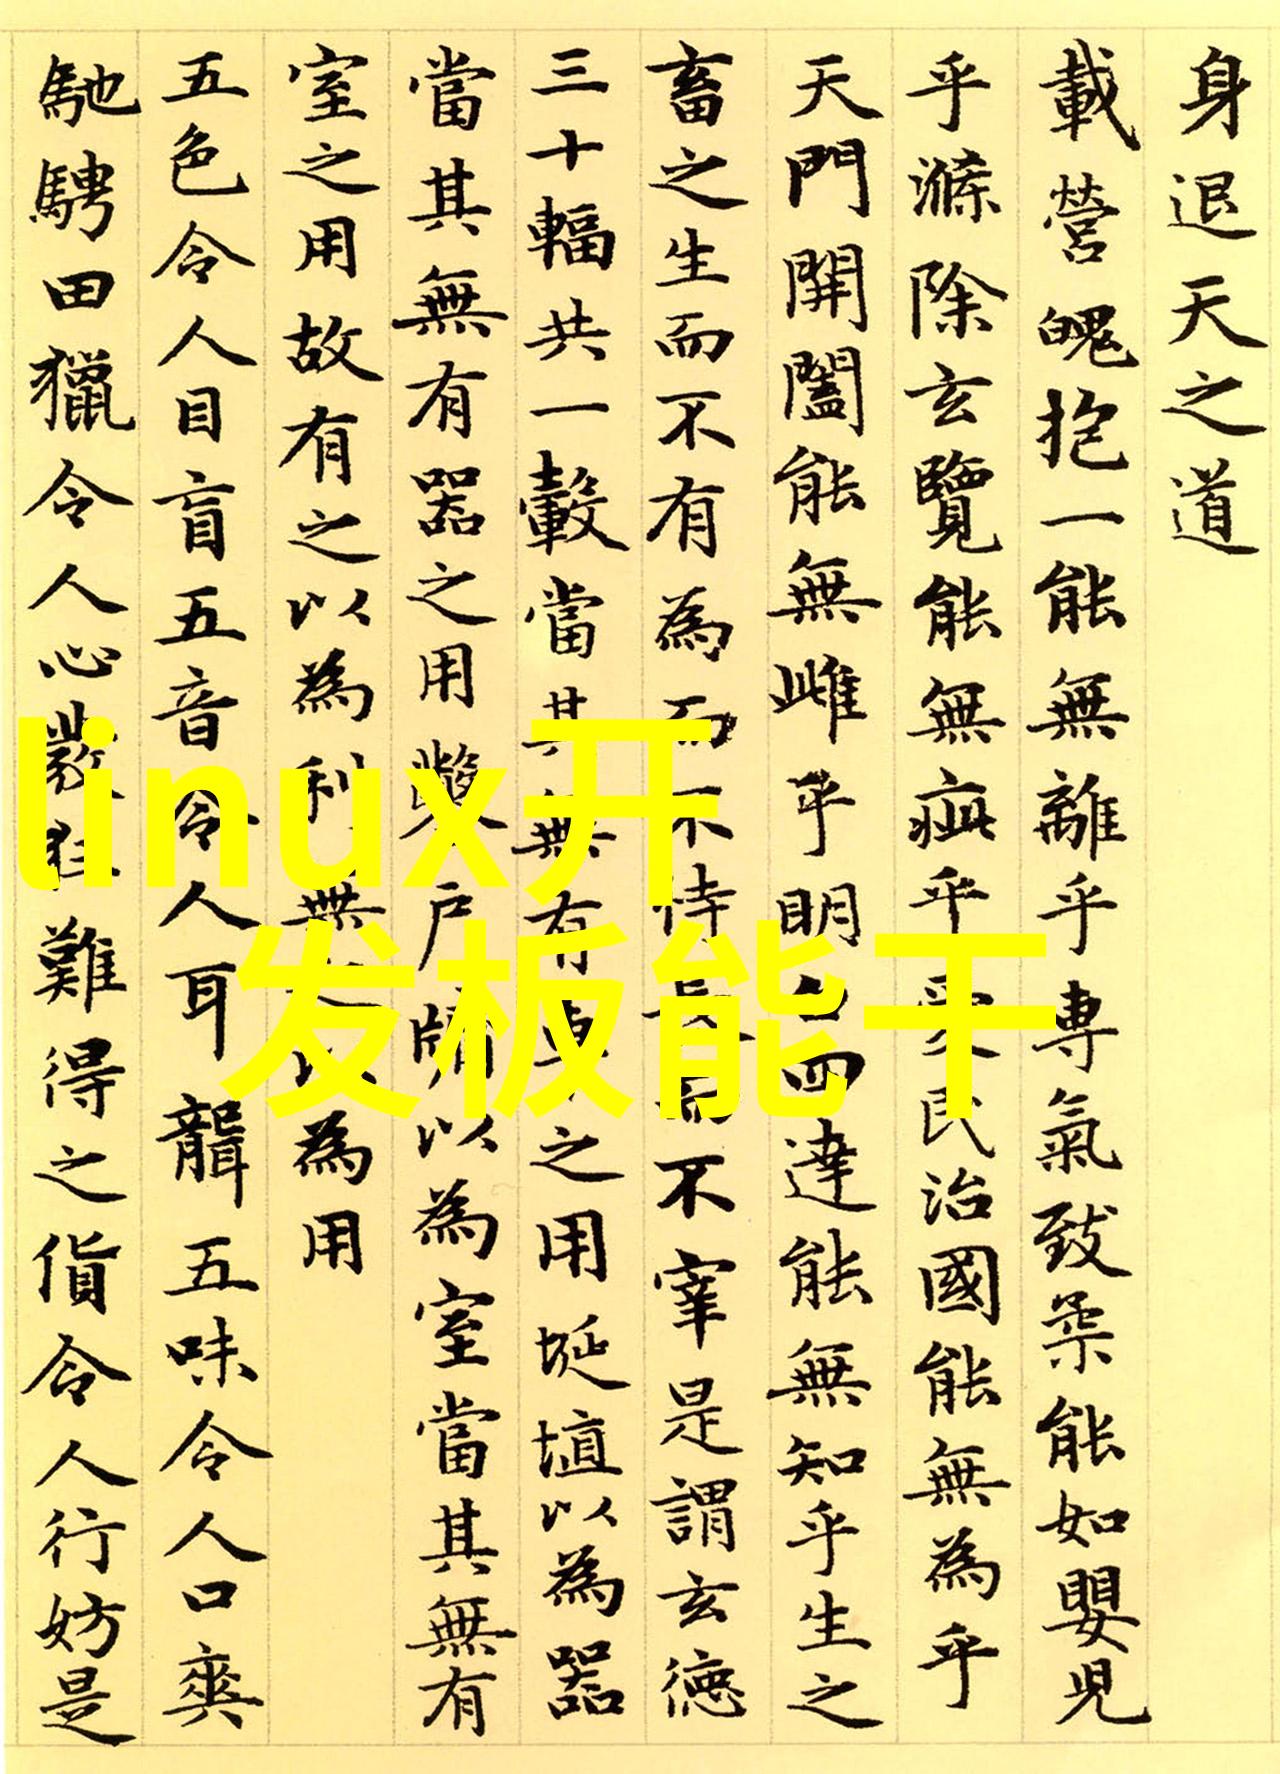 身退天之道
載營魄抱一能無離乎專氣致柔能如嬰児
乎滌除玄覽能無疵乎愛民治國能無為乎
天門開闔能無雌乎明白四達能無知乎生之
畜之生而不有為而不恃長而不宰是謂玄德
三十輻共一轂當其無有車之用埏埴以為器
當其無有器之用鑿户牖以為室當其無有
室之用故有之以為利無之以為用
五色令人目盲五音令人耳聾五味令人口爽
馳騁田獵令人心發狂難得之貨令人行妨是
linux开
发板能干